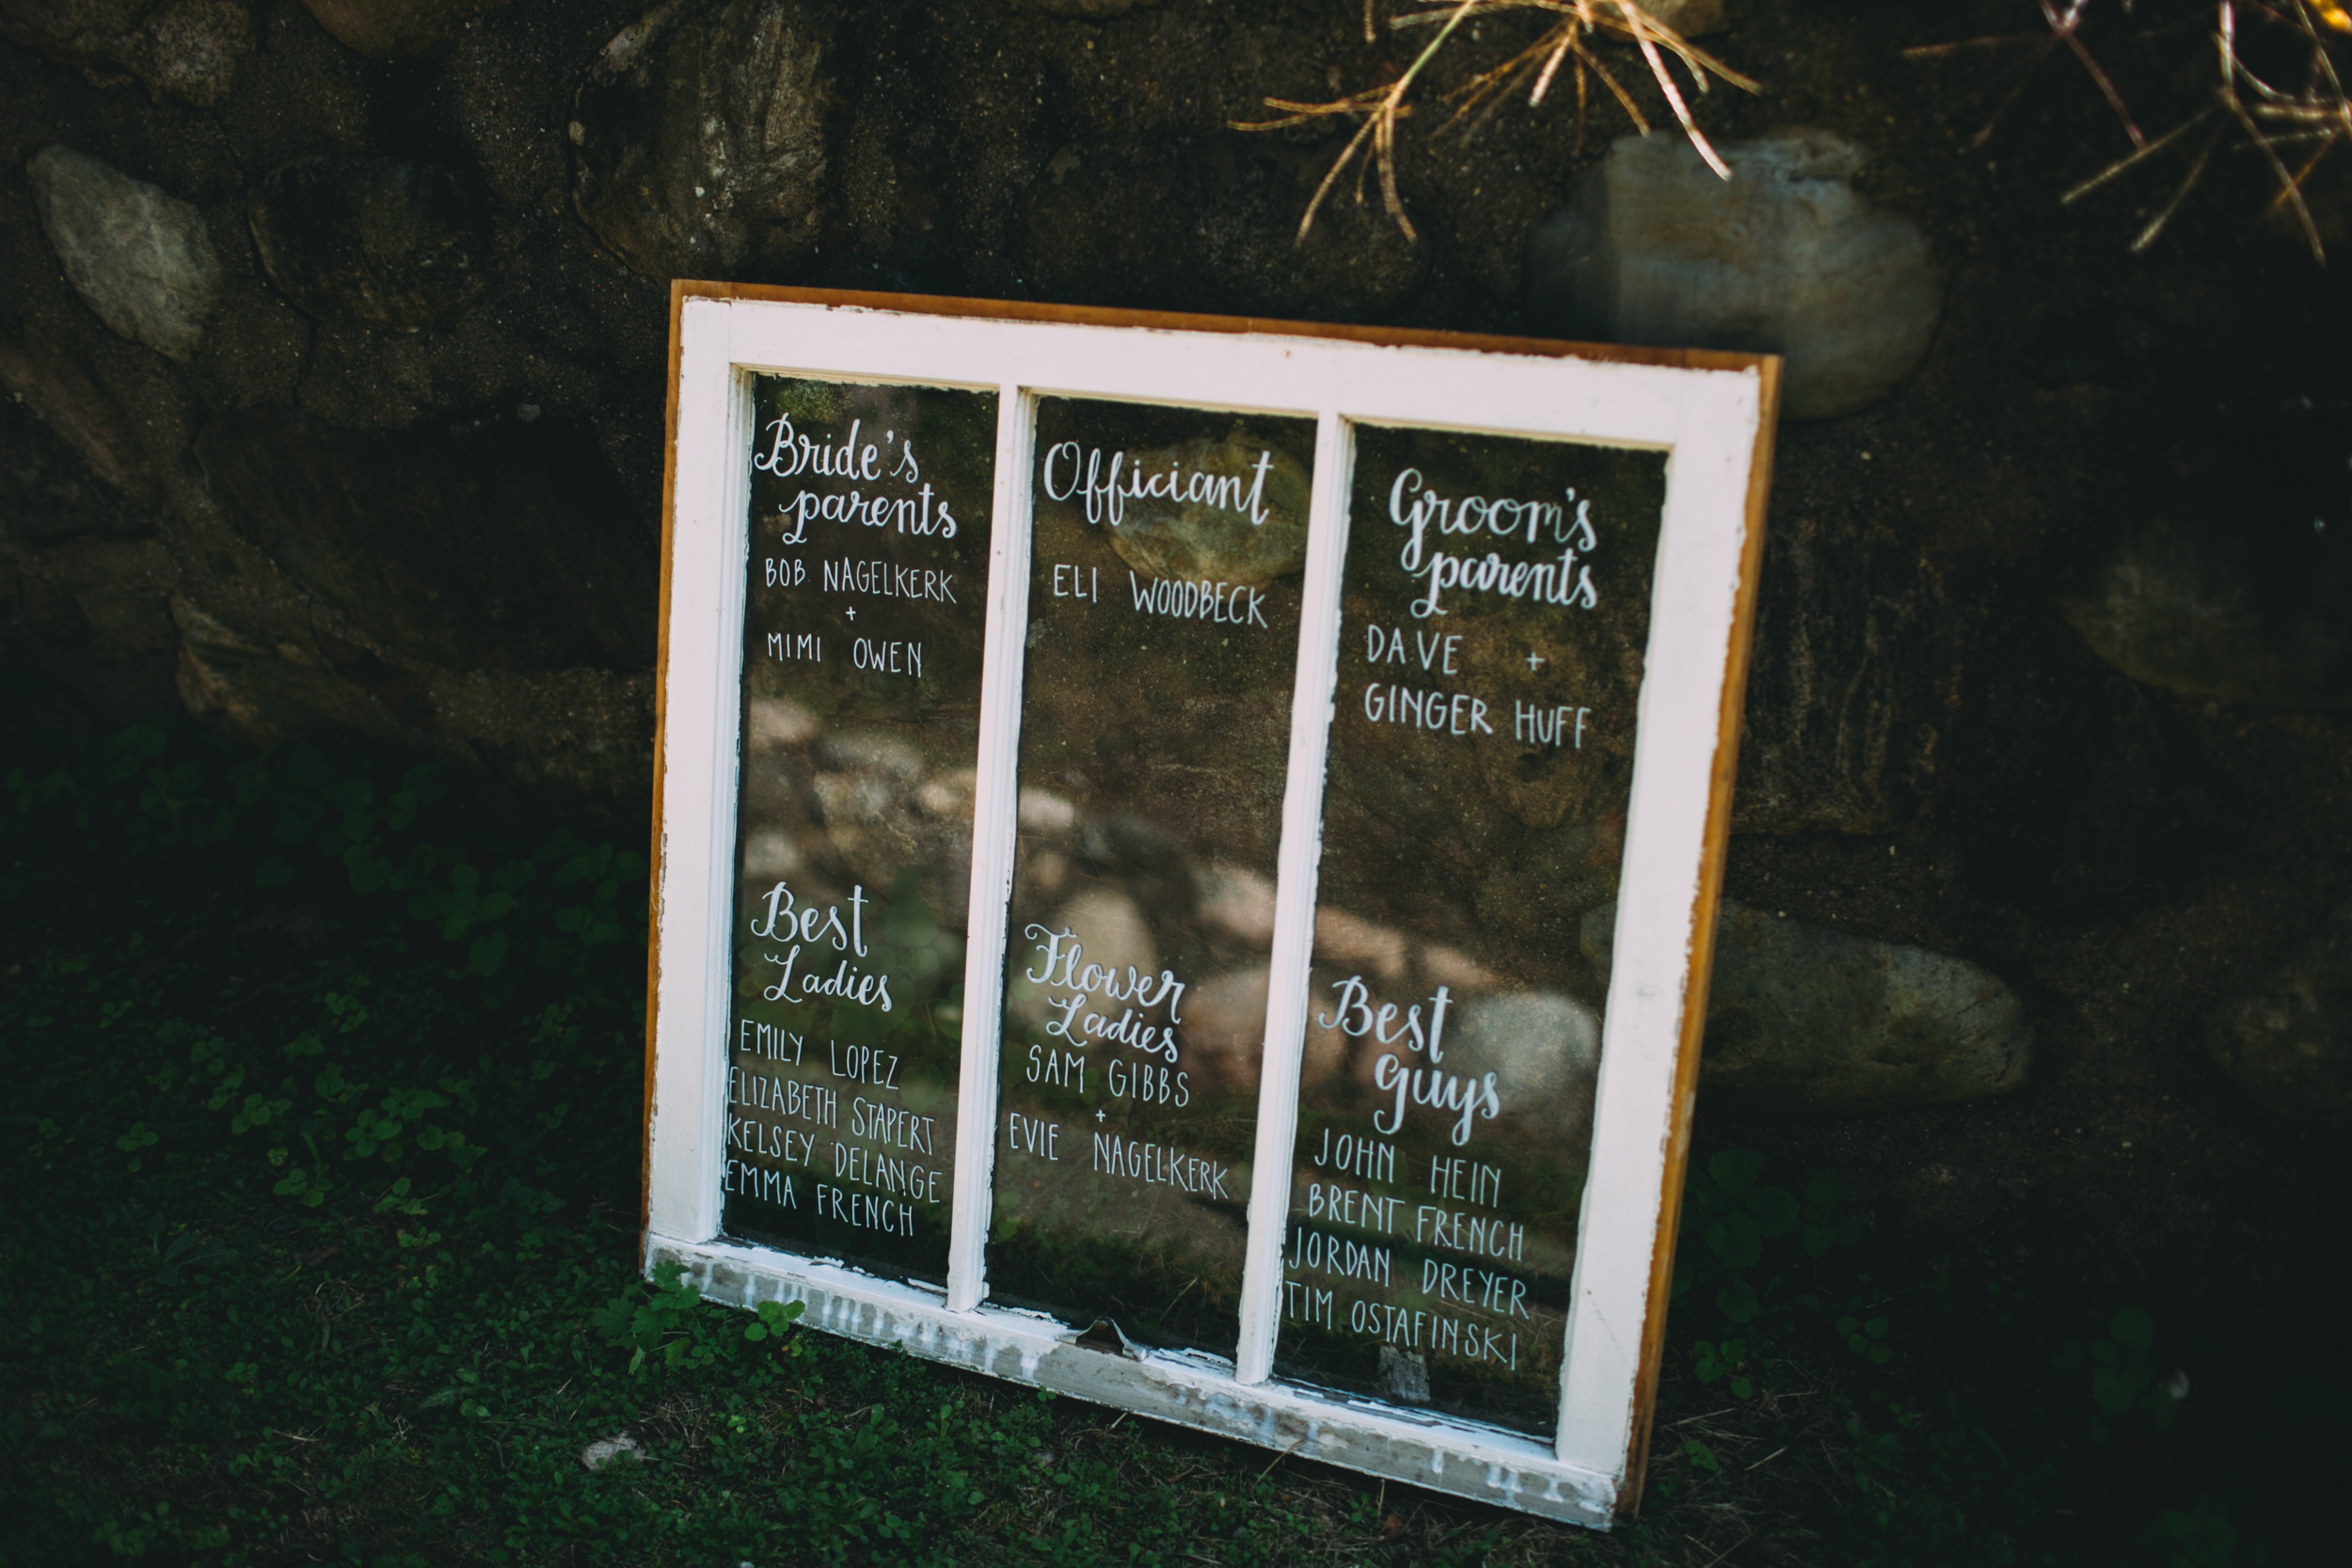 Bride's
parents
BOB NAGELKERK
+
MIMI OWEN
Best
Ladies
EMILY LOPEZ
ELIZABETH STAPERT
KELSEY DELANGE
EMMA FRENCH
Officiant
ELI WOODBECK
Flower
Ladies
SAM GIBBS
+
EVIE NAGELKERK
Groom's
parents
DAVE +
GINGER HUFF
Best
guys
JOHN HEIN
BRENT FRENCH
JORDAN DREYER
TIM OSTAFINSKI